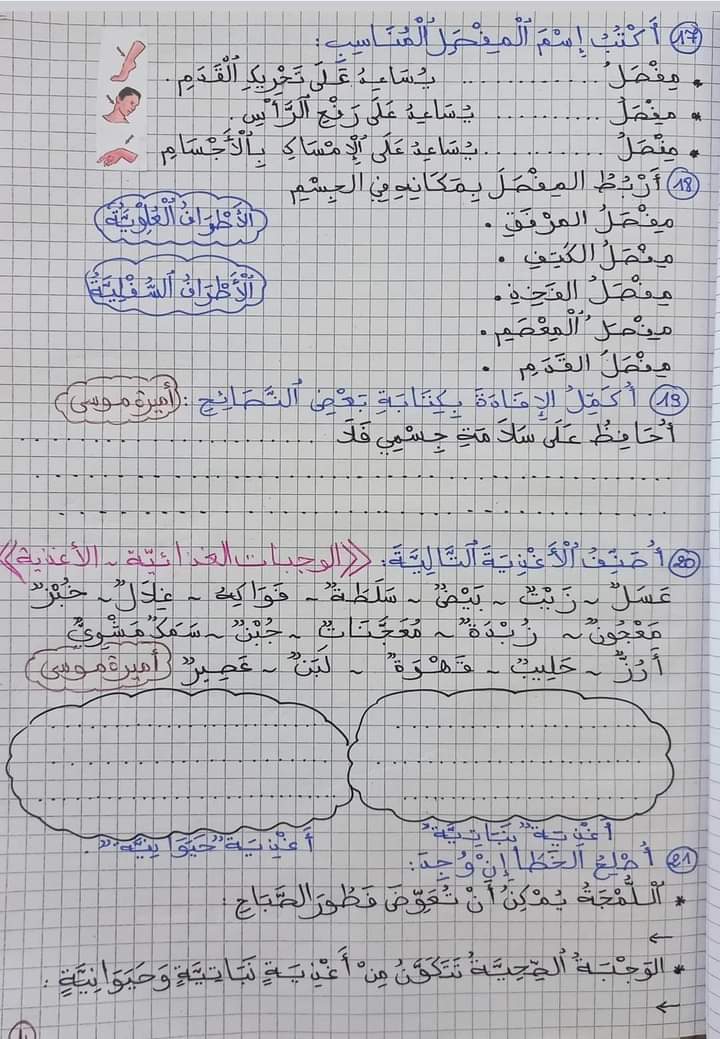 17 أَكْتُبُ إِسْمَ ٱلْمِفْصَلِ ٱلْمُنَاسِبِ:
* مِفْصَلُ ............ يُسَاعِدُ عَلَى تَحْرِيكِ ٱلْقَدَمِ.
* مِفْصَلُ ............ يُسَاعِدُ عَلَى رَفْعِ ٱلرَّأْسِ.
* مِفْصَلُ ............ يُسَاعِدُ عَلَى ٱلْإِمْسَاكِ بِٱلْأَجْسَامِ
18 أَرْبُطُ المِفْصَلَ بِمَكَانِهِ فِي الجِسْمِ
مِفْصَلُ المِرْفَقِ .
الأَطْرَافُ ٱلْعُلْوِيَّةُ
مِفْصَلُ الكَتِفِ .
مِفْصَلُ الفَخِذِ .
ٱلْأَطْرَافُ ٱلسُّفْلِيَّةُ
مِفْصَلُ ٱلْمِعْصَمِ .
مِفْصَلُ القَدَمِ .
19 أُكَمِّلُ الإِفَادَةَ بِكِتَابَةِ بَعْضِ ٱلنَّصَائِحِ: أميرة موسى
أُحَافِظُ عَلَى سَلَامَةِ جِسْمِي فَلَا ..............................
............................................................
............................................................
20 أُصَنِّفُ ٱلْأَغْذِيَةَ ٱلتَّالِيَةَ: «الوجبات الغذائيّة - الأغذية»
عَسَلٌ - زَيْتٌ - بَيْضٌ - سَلَطَةٌ - فَوَاكِهُ - غِلَالٌ - خُبْزٌ
مَعْجُونٌ - زُبْدَةٌ - مُعَجَّنَاتٌ - جُبْنٌ - سَمَكٌ مَشْوِيٌّ
أَرُزٌّ - حَلِيبٌ - قَهْوَةٌ - لَبَنٌ - عَصِيرٌ أميرة موسى
أَغْذِيَةٌ نَبَاتِيَّةٌ
أَغْذِيَةٌ حَيَوَانِيَّةٌ
21 أُصْلِحُ الخَطَأَ إِنْ وُجِدَ:
* ٱللُّمْجَةُ يُمْكِنُ أَنْ تُعَوِّضَ فَطُورَ الصَّبَاحِ:
←
* الوَجْبَةُ ٱلصِّحِيَّةُ تَتَكَوَّنُ مِنْ أَغْذِيَةٍ نَبَاتِيَّةٍ وَحَيَوَانِيَّةٍ:
←